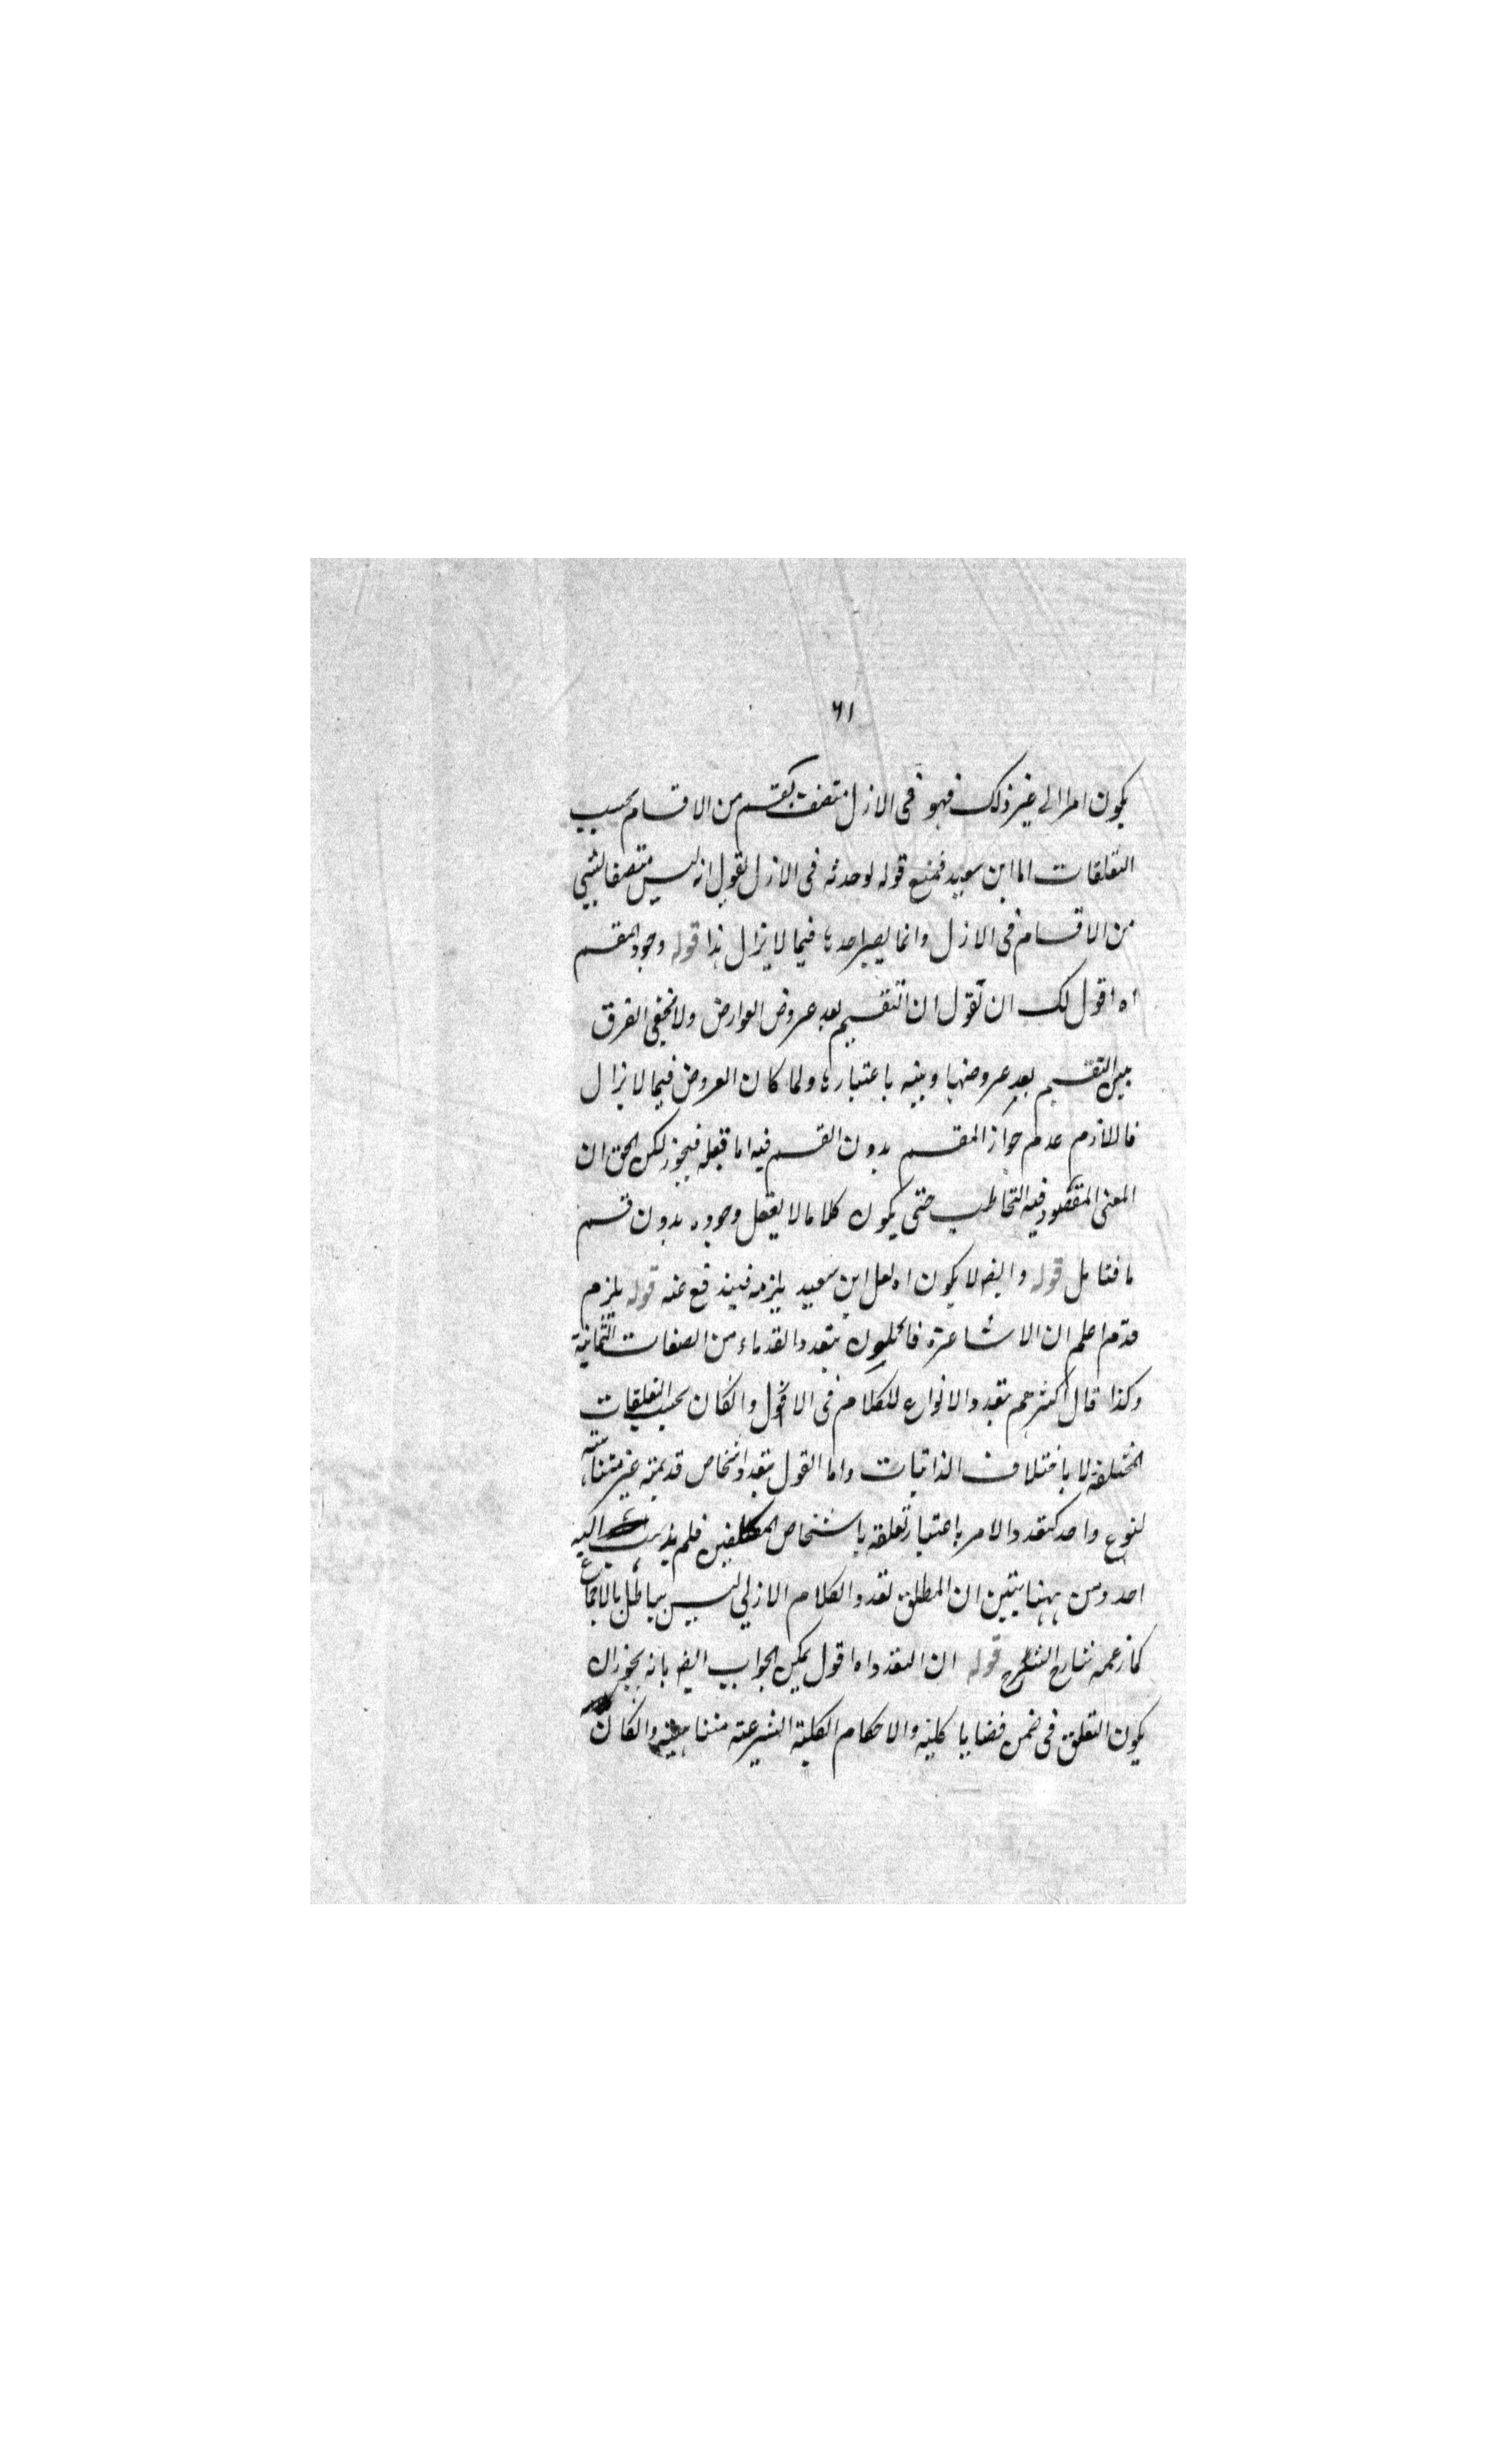 ٦١
يكون امرا الى غير ذلك فهو فى الازل متصف بقسم من الاقسام بحسب
التعلقات اما ابن سعيد فمنع قوله لوحدته فى الازل لقول انه ليس متصفا بشيئ
من الاقسام فى الازل وانما يصير احدها فيما لا يزال هذا قوله وجود المقسم
اه اقول لك ان تقول ان التقسيم بعد عروض العوارض ولا يخفى الفرق
بين التقسيم بعد عروضها وبينه باعتبارها ولما كان العروض فيما لا يزال
فاللازم عدم جواز المقسم بدون القسم فيه اما قبله فيجوز لكن الحق ان
المعنى المقصود فيه التخاطب حتى يكون كلاما لا يعقل وجوده بدون قسم
ما فتامل قوله وايضا لا يكون اه لعل ابن سعيد يلزمه فيندفع عنه قوله يلزم
قدم اعلم ان الاشاعرة قائلون بتعدد القدماء من الصفات الثمانية
وكذا قال اكثرهم بتعدد الانواع للكلام فى الازل وانكان بحسب التعلقات
المختلفة لا باختلاف الذاتيات واما القول بتعدد اشخاص قديمة غير متناهية
لنوع واحد كتعدد الامر باعتبار تعلقه باشخاص المكلفين فلم يذهب اليه
احد ومن ههنا يتبين ان المطلق تعدد الكلام الازلي ليس بباطل بالاجماع
كما زعمه شارح الشرح قوله ان التعدد اه اقول يمكن الجواب ايضا بانه يجوز ان
يكون التعلق فى ضمن قضايا كلية والاحكام الكلية الشرعية متناهية وانكان